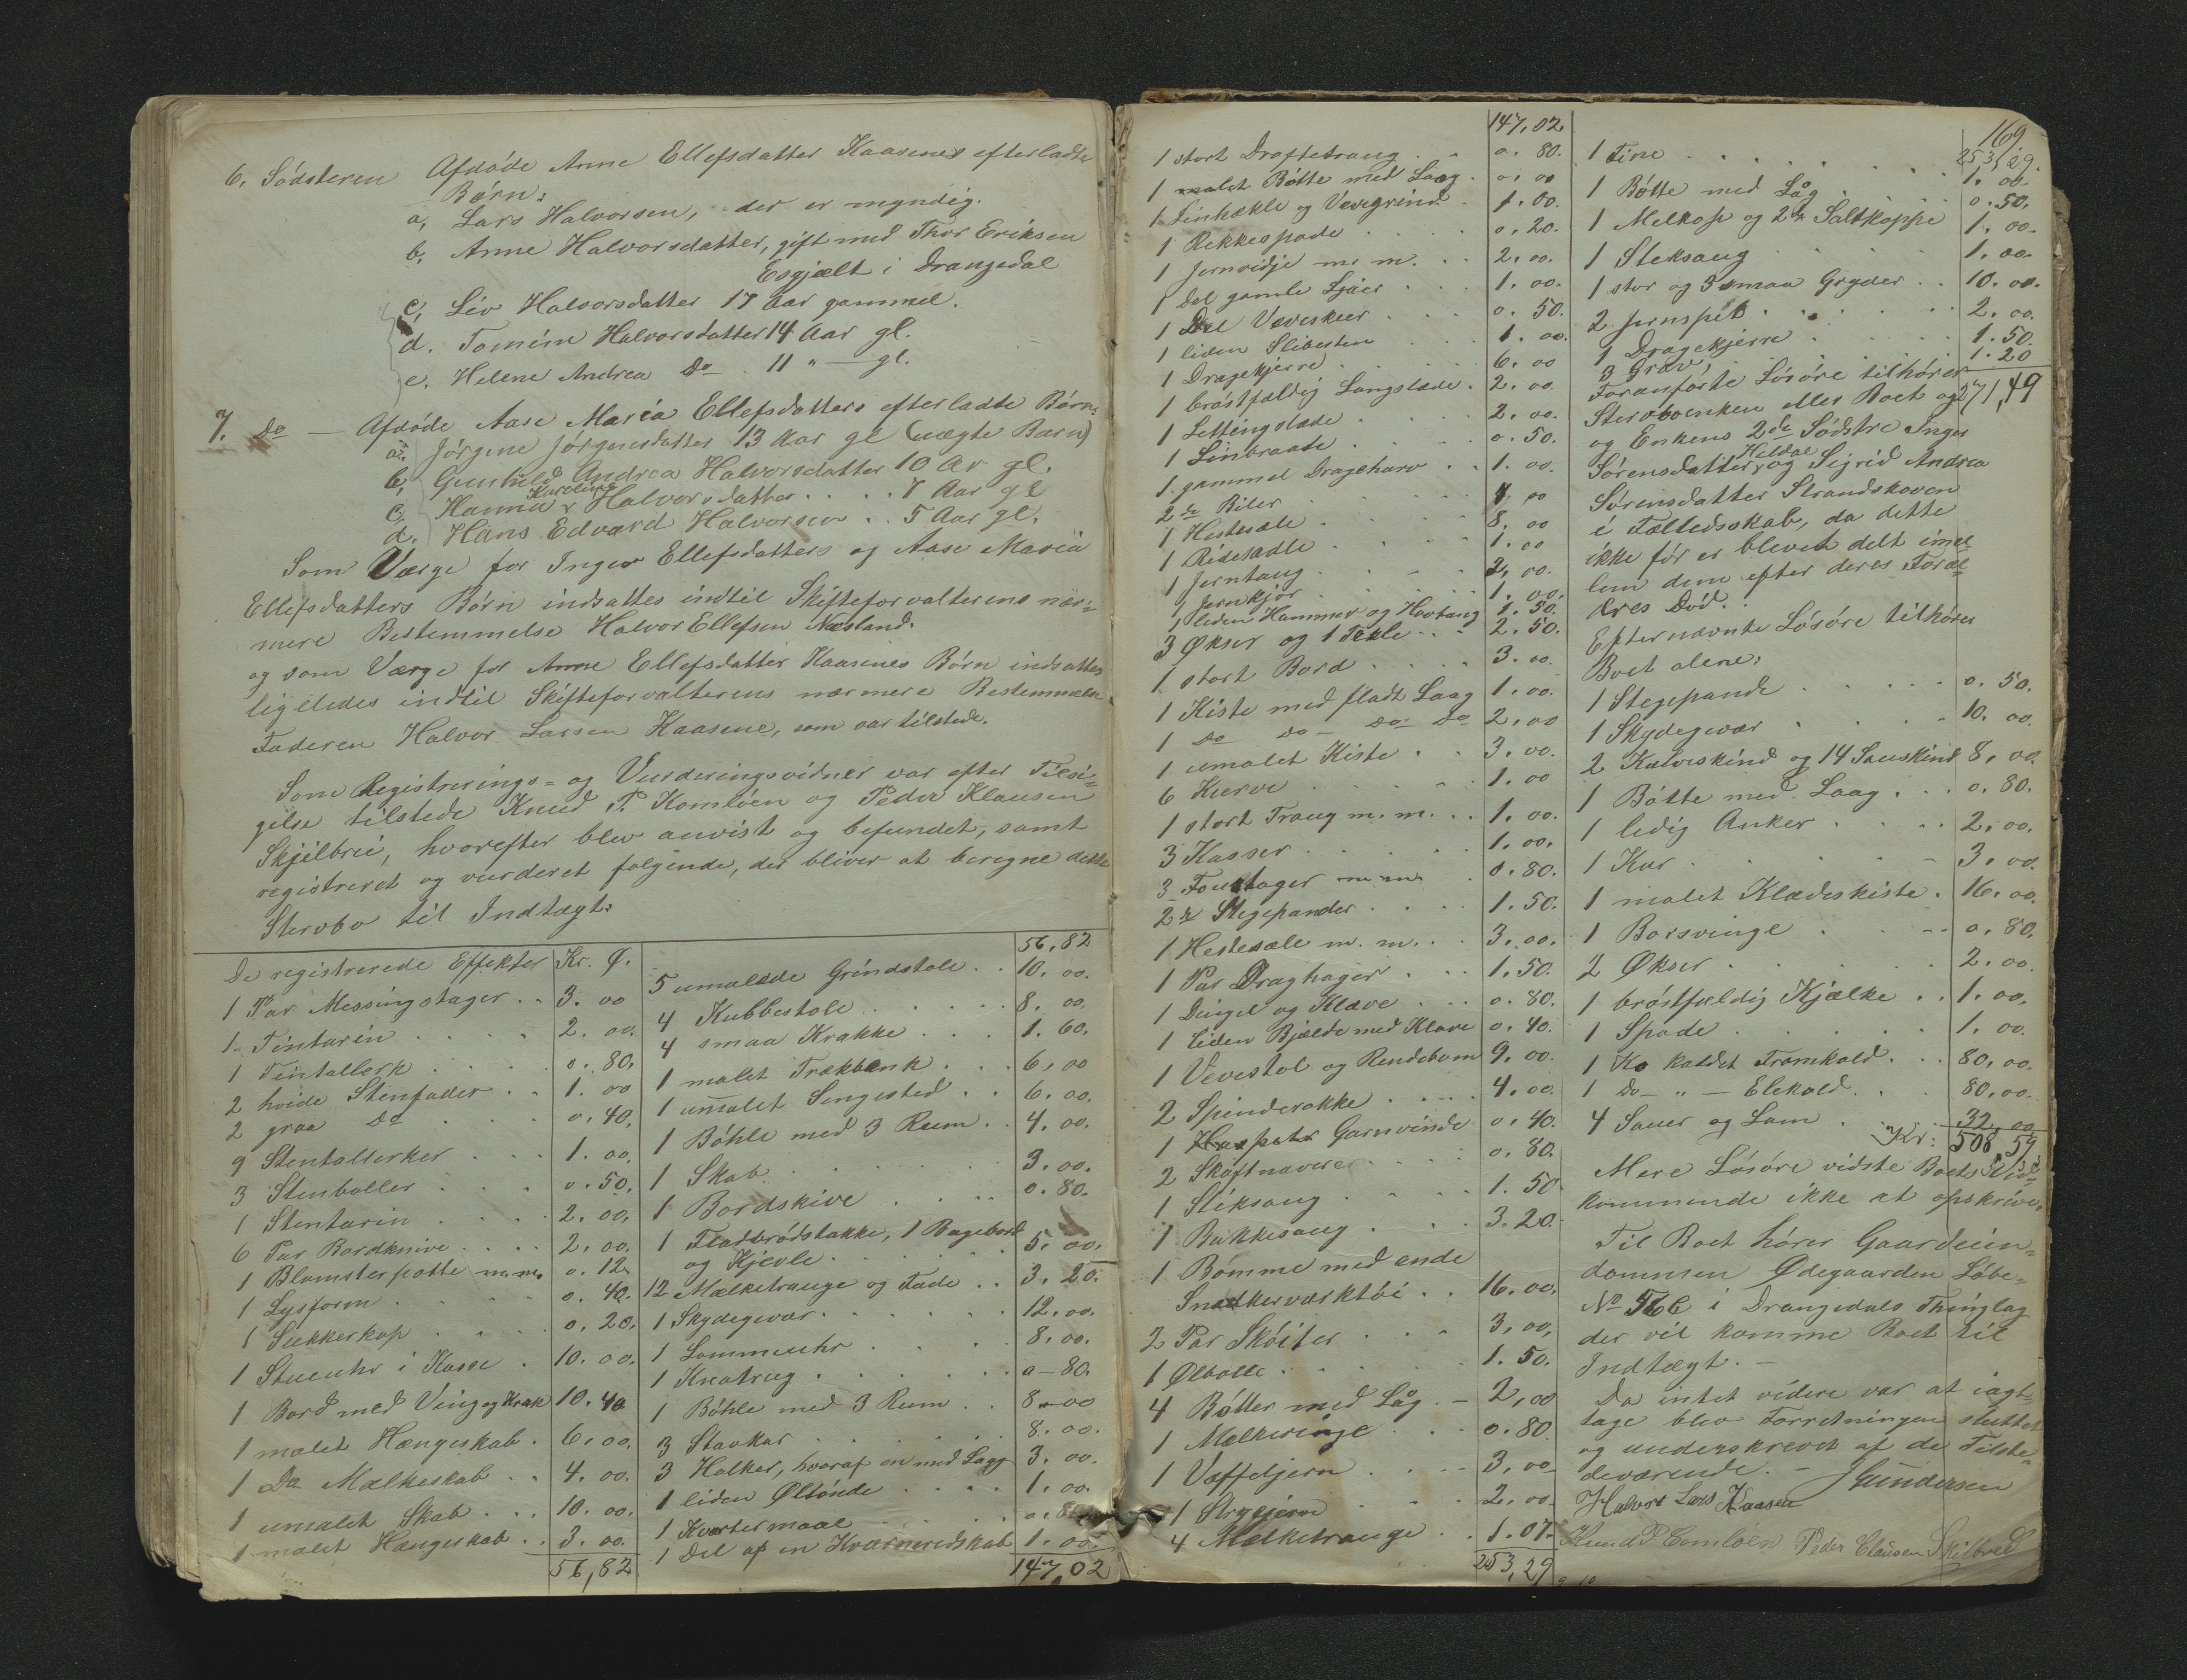 6. Södsteren Afdöde Anne Ellefsdatter Kaasenes efterladte
Börn:
a, Lars Halvorsen, der er myndig.
b, Anne Halvorsdatter, gift med Thor Eriksen
Esgjælt i Drangedal
c, Liv Halvorsdatter 17 Aar gammel.
d. Tomine Halvorsdatter 14 Aar gl.
e. Helene Andrea Do 11 " — gl.
7. Do — Afdöde Aase Maria Ellefsdatters efterladte Börn:
a. Jörgine Jörgensdatter 13 Aar gl (uægte Barn)
b, Gunhild Andrea Halvorsdatter 10 Ar gl.
c, Hanna Karoline Halvorsdatter . . . . 7 Aar gl
d. Hans Edvard Halvorsen . . 5 Aar gl.
Som Værge for Inger Ellefsdatters og Aase Maria
Ellefsdatters Börn indsattes indtil Skifteforvalterens nær-
mere Bestemmelse Halvor Ellefsen Næsland.
og som Værge for Anne Ellefsdatter Kaasenes Börn indsattes
ligeledes indtil Skifteforvalterens nærmere Bestemmelse
Faderen Halvor Larsen Kaasene, som var tilstede.
Som Registrerings- og Vurderingsvidner var efter Tilsi-
gelse tilstede Knud P. Komlöen og Peder Klausen
Skjelbrei, hvorefter blev anvist og befundet, samt
registreret og vurderet fölgende, der bliver at beregne dette
Stervbo til Indtægt:
De registrerede Effekter Kr. Ø.
1 Par Messingstager . . 3. 00
1 Tinterin . . . . 2. 00.
1 Tintallerk . . . 0. 80.
2 hvide Stenfader . . 1. 00
2 graa Do . . . 0. 40.
9 Stentallerker . . . 1. 00.
3 Stenboller . . . 0. 50.
1 Stenterin . . . . 2. 00.
6 Par Bordknive . . . . 2. 00.
1 Blomsterpotte m. m. 0. 12.
1 Lysform . . . . . 0. 40.
1 Sukkerkop . . . . 0. 20.
1 Stueuhr i Kasse . 10. 00.
1 Bord med Ving og Krak 10. 40
1 malet Hængeskab . 6. 00.
1 Do Mælkeskab . . 4. 00.
1 umalet Skab . . . 10. 00.
1 malet Hængeskab . . 3. 00.
56,82
56,82
5 umalede Grindstole . . 10. 00.
4 Kubbestole . . . . . 8. 00.
4 smaa Krakke . . . 1. 60.
1 malet Trækbænk . . . 6. 00
1 umalet Sengested . . 6. 00.
1 Böhle med 3 Rum . . 4. 00.
1 Skab . . . . . . 3. 00.
1 Bordskive . . . . 0. 80.
1 Fladbrödstakke, 1 Bagebord
og Kjevle . . . . . 5. 00.
12 Mælketrauge og Fade . . 3. 20.
1 Skydegevær . . . . . 12. 00.
1 Lommeuhr . . . . 8. 00.
1 Knatrug . . . . . . 0 - 80.
1 Böhle med 3 Rum . . 8 - 00
3 Stavkar . . . . . . 8. 00.
3 Halker, hvoraf en med Lagg 3. 00.
1 liden Øltönde . . . . 1. 00.
1 Kvartermaal . . . . 0. 80
1 Del af en Kværneredskab 1. 00.
147,02
147,02
1 stort Draftetraug . . 0. 80.
1 malet Bötte med Laag . 0. 00
1 Linhækle og Vevegrind . 1. 00.
1 Rekkespade . . . . . 0. 20.
1 Jernvidje m. m. . . 2. 00.
1 Del gamle Ljåer . . . 1. 00.
1 Del Veveskeer . . . . 0. 50.
1 liden Slibesten . . . 1. 00.
1 Dragekjerre . . . . . 6. 00
1 bröstfældig Langslæde . 2. 00.
1 Lettingslæde . . . . 2. 00.
1 Linbraate . . . . . 0. 50.
1 gammel Drageharv . . 1. 00.
2de Biler . . . . . . 4. 00
1 Hestesæle . . . . . 8. 00
1 Ridesadle . . . . . 1. 00
1 Jerntang . . . . . 2. 00.
1 Jernkjör . . . . . 1. 00.
1 liden Hammer og Hovtang 1. 50.
3 Økser og 1 Texle . . 2. 50.
1 stort Bord . . . . 3. 00.
1 Kiste med fladt Laag 1. 00.
1 Do Do — Do Do 2. 00
1 umalet Kiste . . 3. 00.
6 Kurve . . . . . 1. 00
1 stort Traug m. m. . . 1. 00.
3 Kasser . . . . . . 1. 00.
3 Foustager m. m. . 0. 80.
2de Stegepander . . . . 1. 50.
1 Hestesæle m. m. . . 3. 00.
1 Par Draghager . . . 1. 50.
1 Dingel og Klave . . . 0. 80.
1 Liden Bjelde med Klave 0. 40.
1 Vevestol og Rendebom 9. 00.
2 Spinderokke . . . . 4. 00.
1 Garnvinde 0. 40.
2 Skaftnavere . . . . 0. 80.
1 Stiksaug . . . . 1. 50
1 Bakkesaug . . . 3. 20.
1 Bomme med ende
Snedkerværktöi . . 16. 00.
2 Par Skøiter . . . 3. 00.
1 Ølbolle . . . . . 1. 50.
4 Bötter med Låg . — 2,00
1 Mælkeringe . . . 0. 80
1 Vaffeljern . . . . 3. 00
1 Strygjern . . . . 2. 00
4 Mælketrauge . . 1. 07.
253,29
169.
253,29.
1 Tine . . . . . . . 1. 00
1 Bötte med Låg . . . . 0. 50.
1 Melkop og 2de Saltkoppe 1. 00.
1 Steksaug . . . 1. 00
1 stor og 3 smaa Gryder . . 10. 00.
2 Jernspet . . . . . . 2. 00.
1 Dragekjerre . . . . 1. 50.
3 Grev, . . . . . . 1. 20
271,49
Foranförte Lösöre tilhörer
Stervboenken eller Boet og
og Enkens 2de Södstre Inger
Sörensdatter Heldal og Sigrid Andrea
Sörensdatter Strandskoven
i Fælledsskab, da dette
ikke för er blevet delt imel-
lem dem efter deres Foræl-
dres Död.
Efternævnte Lösöre tilhörer
Boet alene:
1 Stegepande . . . . . 0. 50.
1 Skydegevær . . . . 10. 00.
2 Kalveskind og 14 Saueskind 8. 00.
1 Bötte med Laag . . . 0. 80.
1 ledig Anker . . . . 2. 00.
1 Kar . . . . . . 3. 00.
1 malet Klædeskiste . 16. 00.
1 Borsvinge . . . . 0. 80.
2 Økser . . . . . . 2. 00.
1 bröstfældig Kjælke . . 1. 00.
1 Spade . . . . . . 1. 00.
1 Ko kaldet Framkold . . . 80. 00.
1 Do — " — Elekold . . 80. 00.
4 Sauer og Lam . . 32. 00
Kr: 508 59
Mere Lösöre vidste Boets Ved-
kommende ikke at opskrive.
Til Boet hörer Gaardeien-
dommen Ødegaarden Löbe-
No 56b i Drangedals Thinglag
der vil komme Boet til
Indtægt. —
Da intet videre var at iagt-
tage blev Forretningen sluttet
og underskrevet af de Tilste-
deværende. — J Gundersen
Halvor Lars Kaasen
Knud P Comloen Peder Clausen Skilbred